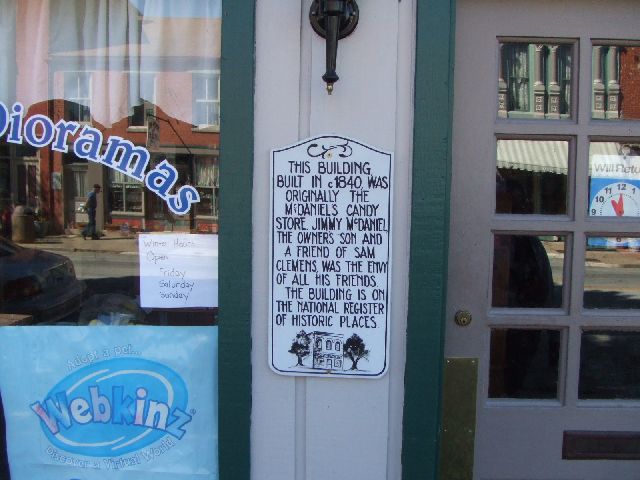 Dioramas
Winter Hours
Open
Friday
Saturday
Sunday
Adopt a pet...
Webkinz
Discover a Virtual World
THIS BUILDING,
BUILT IN c1840, WAS
ORIGINALLY THE
McDANIEL'S CANDY
STORE. JIMMY McDANIEL,
THE OWNERS SON AND
A FRIEND OF SAM
CLEMENS, WAS THE ENVY
OF ALL HIS FRIENDS.
THE BUILDING IS ON
THE NATIONAL REGISTER
OF HISTORIC PLACES.
Will